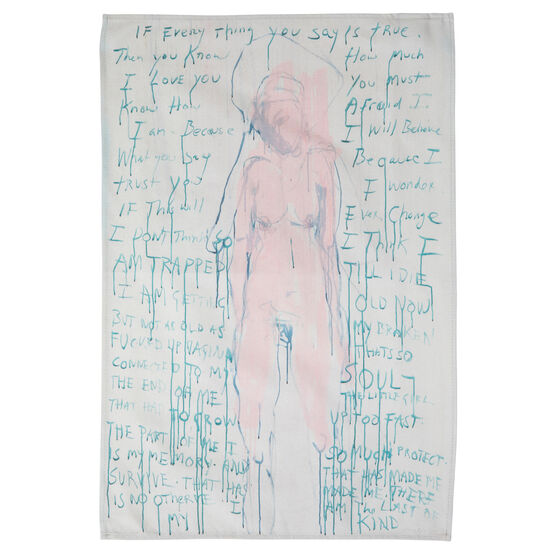 IF Every Thing you say Is TRUE.
Then you Know How Much
I LOVE YOU You Must
Know How Afraid I.
I am. Because I Will Believe
What you say Because I
trust you I wonder
IF This will Ever Change
I DONT Think SO I Think I
AM TRAPPED TILL I DIE
I AM GETTING OLD NOW
BUT NOT AS OLD AS MY BROKEN
FUCKED UP VAGINA THATS SO
CONNECTED TO MY SOUL
THE END OF ME THE LITTLE GIRL
THAT HAD TO GROW UP TOO FAST.
THE PART OF ME I SO MUCH PROTECT.
IS MY MEMORY. AND THAT HAS MADE ME
SURVIVE. THAT HAS MADE ME. THERE
IS NO I AM The LAST
MY KIND